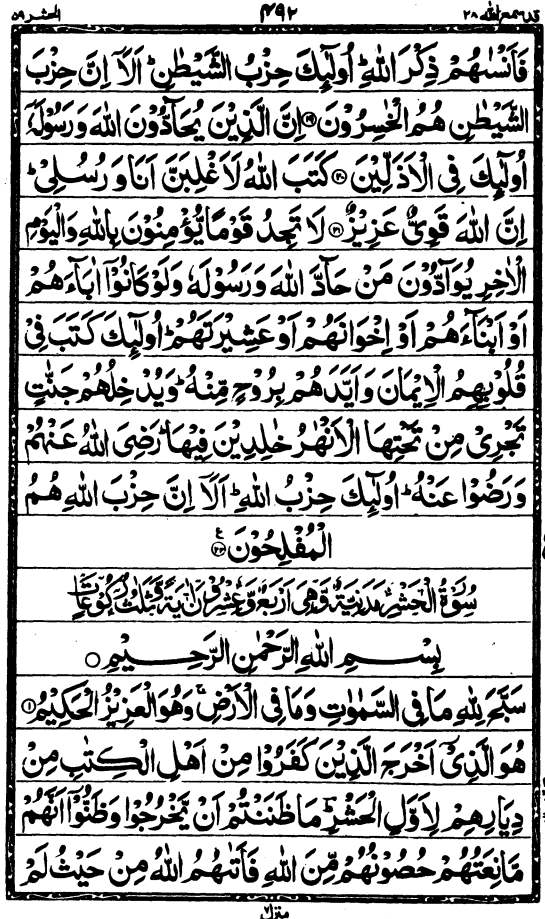 قد سمع الله ٢٨ ٤٩٢ الحشر ٥٩
فَاَنْسٰىهُمْ ذِكْرَ اللّٰهِ ؕ اُولٰٓئِكَ حِزْبُ الشَّيْطٰنِ ؕ اَلَاۤ اِنَّ حِزْبَ
الشَّيْطٰنِ هُمُ الْخٰسِرُوْنَ ﴿۱۹﴾ اِنَّ الَّذِيْنَ يُحَآدُّوْنَ اللّٰهَ وَرَسُوْلَهٗۤ
اُولٰٓئِكَ فِى الْاَذَلِّيْنَ ﴿۲۰﴾ كَتَبَ اللّٰهُ لَاَغْلِبَنَّ اَنَا وَرُسُلِىْ ؕ
اِنَّ اللّٰهَ قَوِىٌّ عَزِيْزٌ ﴿۲۱﴾ لَا تَجِدُ قَوْمًا يُّؤْمِنُوْنَ بِاللّٰهِ وَالْيَوْمِ
الْاٰخِرِ يُوَآدُّوْنَ مَنْ حَآدَّ اللّٰهَ وَرَسُوْلَهٗ وَلَوْ كَانُوْۤا اٰبَآءَهُمْ
اَوْ اَبْنَآءَهُمْ اَوْ اِخْوَانَهُمْ اَوْ عَشِيْرَتَهُمْ ؕ اُولٰٓئِكَ كَتَبَ فِىْ
قُلُوْبِهِمُ الْاِيْمَانَ وَاَيَّدَهُمْ بِرُوْحٍ مِّنْهُ ؕ وَيُدْخِلُهُمْ جَنّٰتٍ
تَجْرِىْ مِنْ تَحْتِهَا الْاَنْهٰرُ خٰلِدِيْنَ فِيْهَا ؕ رَضِىَ اللّٰهُ عَنْهُمْ
وَرَضُوْا عَنْهُ ؕ اُولٰٓئِكَ حِزْبُ اللّٰهِ ؕ اَلَاۤ اِنَّ حِزْبَ اللّٰهِ هُمُ
الْمُفْلِحُوْنَ ﴿۲۲﴾ ع
سُوْرَةُ الْحَشْرِ مَدَنِيَّةٌ وَّهِىَ اَرْبَعٌ وَّعِشْرُوْنَ اٰيَةً وَّثَلٰثُ رُكُوْعَاتٍ
بِسْمِ اللّٰهِ الرَّحْمٰنِ الرَّحِيْمِ ○
سَبَّحَ لِلّٰهِ مَا فِى السَّمٰوٰتِ وَمَا فِى الْاَرْضِ ۚ وَهُوَ الْعَزِيْزُ الْحَكِيْمُ ﴿۱﴾
هُوَ الَّذِىْۤ اَخْرَجَ الَّذِيْنَ كَفَرُوْا مِنْ اَهْلِ الْكِتٰبِ مِنْ
دِيَارِهِمْ لِاَوَّلِ الْحَشْرِ ؕ مَا ظَنَنْتُمْ اَنْ يَّخْرُجُوْا وَظَنُّوْۤا اَنَّهُمْ
مَّانِعَتُهُمْ حُصُوْنُهُمْ مِّنَ اللّٰهِ فَاَتٰىهُمُ اللّٰهُ مِنْ حَيْثُ لَمْ
منزل ٧